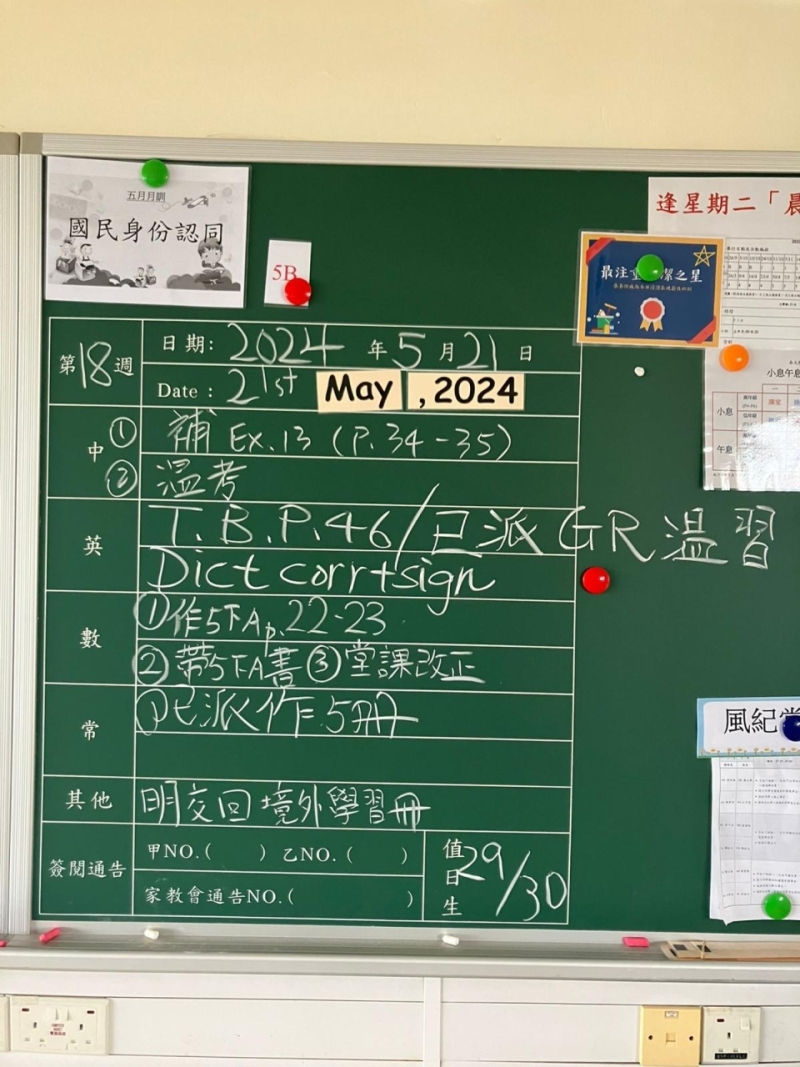 五月月訓
國民身份認同
5B
逢星期二「晨
最注重
潔之星
小息午息
小息
午息
第18週
日期: 2024 年 5 月 21 日
Date : 21st May , 2024
中
① 補 Ex.13 (P.34-35)
② 溫考
英
T.B.P.46/已派 GR 溫習
Dict corr+sign
數
①作5下A p.22-23
②帶5下A書 ③堂課改正
常
①已派作5冊
其他
明交回境外學習冊
簽閱通告
甲NO.( ) 乙NO.( )
家教會通告NO.( )
值日生
29/30
風紀